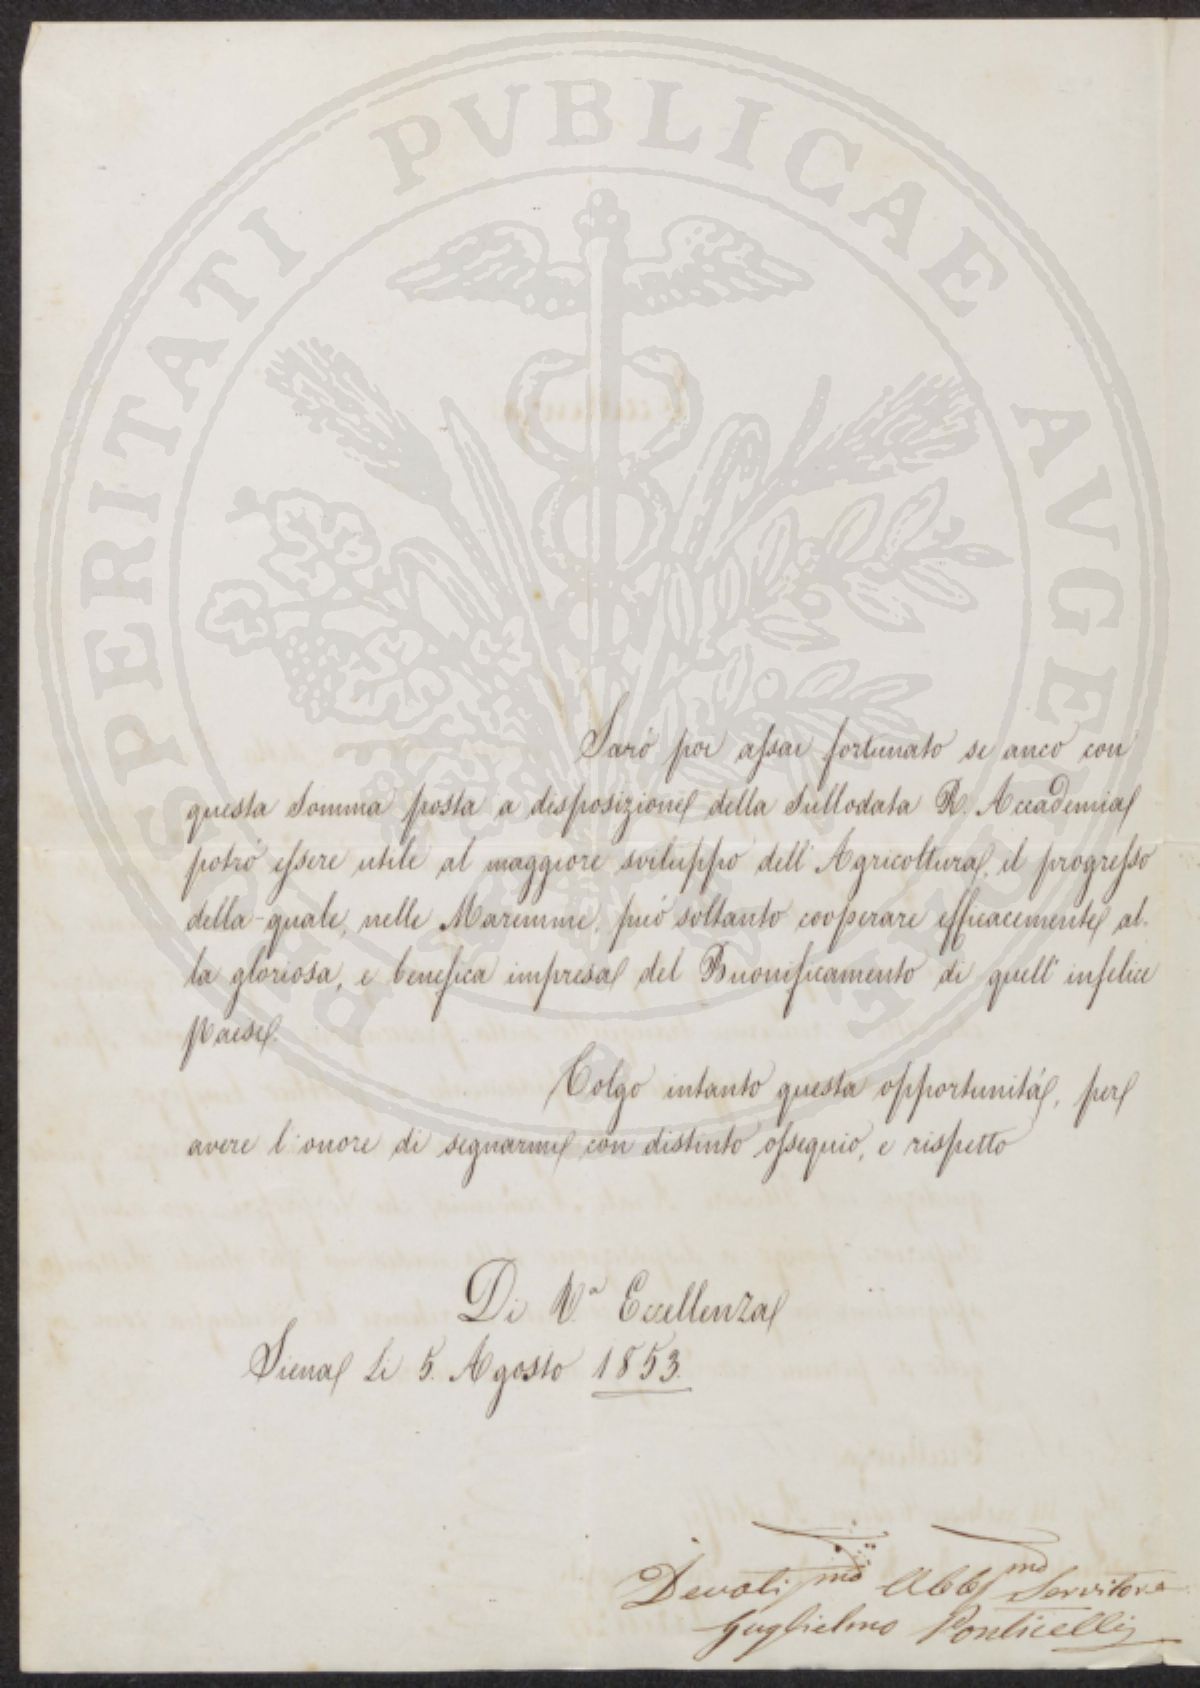 PROSPERITATI PVBLICAE AVGENDAE
Sarò poi assai fortunato se anco con
questa Somma posta a disposizione della Sullodata R. Accademia
potrò essere utile al maggiore sviluppo dell'Agricoltura, il progresso
della quale, nelle Maremme, può soltanto cooperare efficacemente al-
la gloriosa, e benefica impresa del Buonificamento di quell'infelice
Paese.
Colgo intanto questa opportunità, per
avere l'onore di segnarmi con distinto ossequio, e rispetto
Di V.a Eccellenza
Siena li 5. Agosto 1853.
Devotissmo Obbmo Servitore
Guglielmo Ponticelli